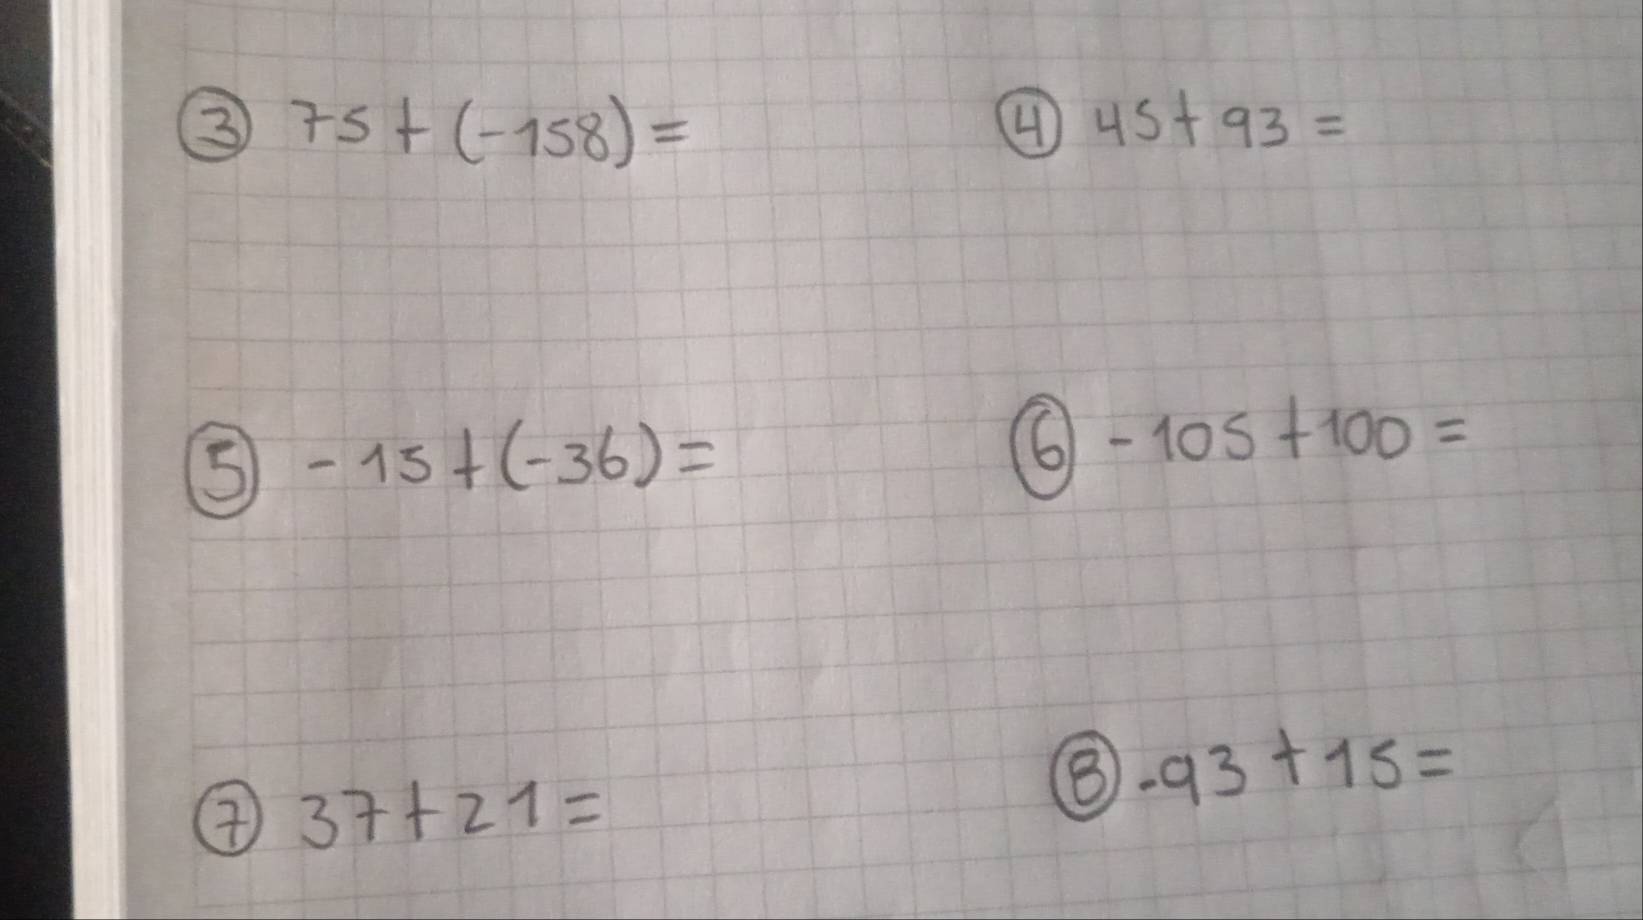 ③ 75 + (-158) =
④ 45 + 93 =
⑤ - 15 + (-36) =
⑥ - 105 + 100 =
⑦ 37 + 21 =
⑧ -93 + 15 =